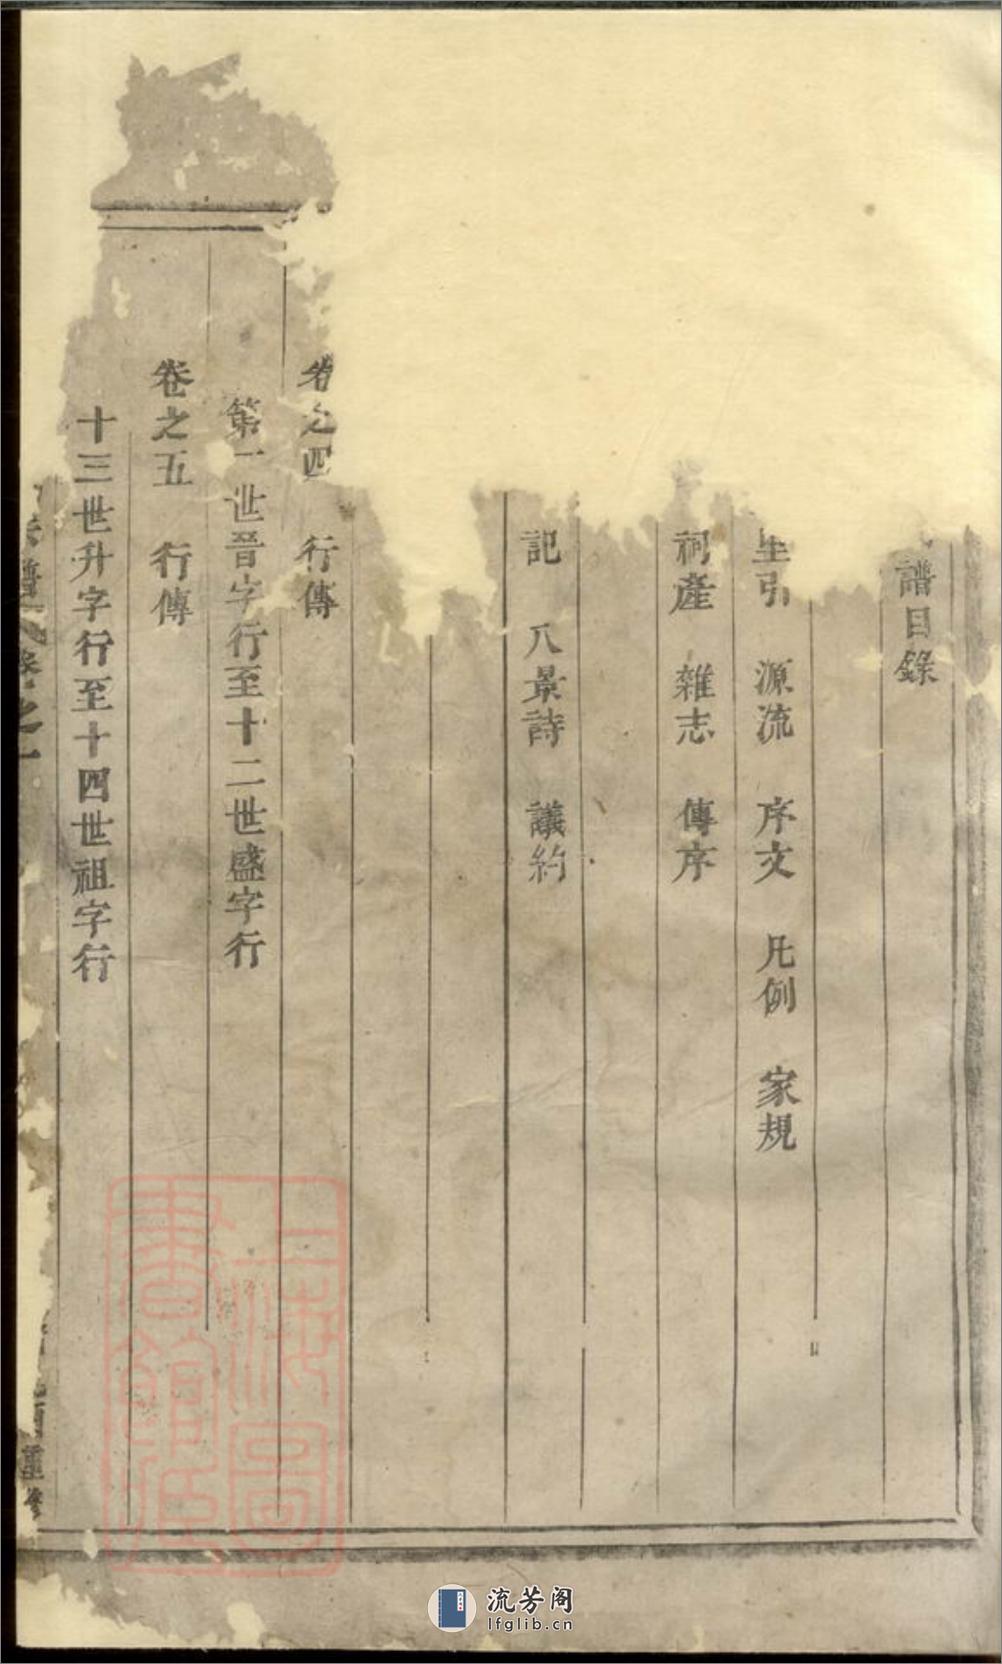 譜目錄
引 源流 序文 凡例 家規
祠產 雜志 傳序
記 八景詩 議約
卷之四 行傳
第一世晉字行至十二世盛字行
卷之五 行傳
十三世升字行至十四世祖字行
宗譜 卷之一 酉重修
上海圖書館藏
流芳阁
lfglib.cn